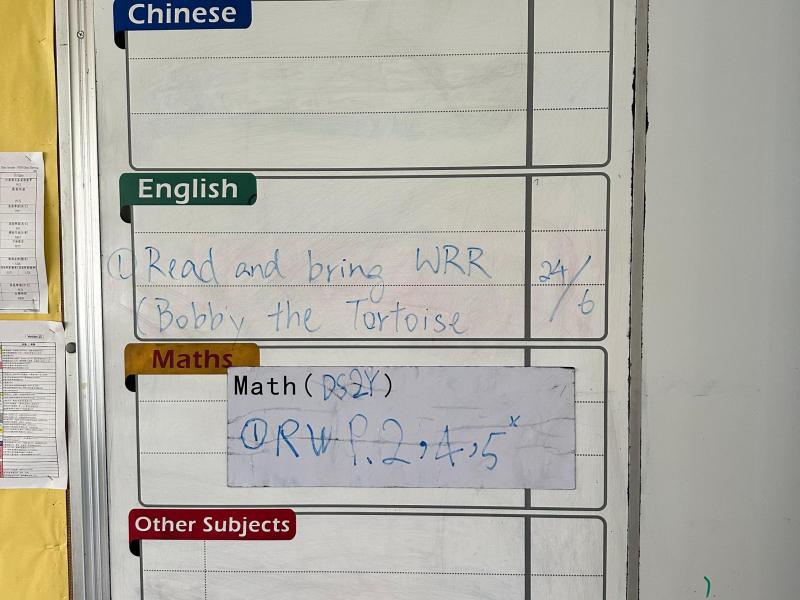 Chinese
English
① Read and bring WRR
24/6
(Bobby the Tortoise
Maths
Math(DSZY)
① RW P.2,4,5
Other Subjects